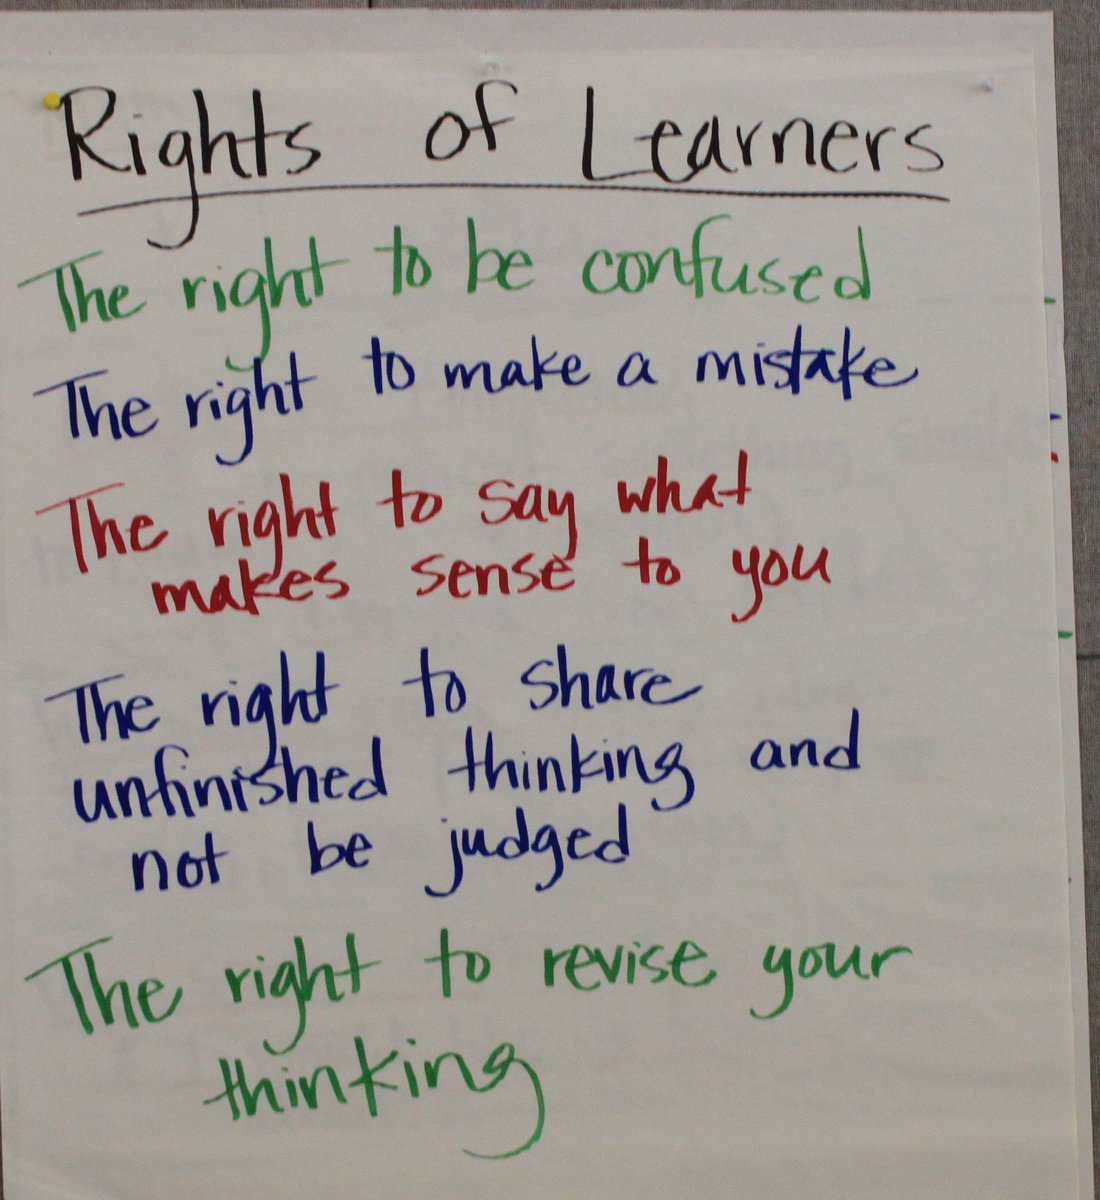 Rights of Learners
The right to be confused
The right to make a mistake
The right to say what
makes sense to you
The right to share
unfinished thinking and
not be judged
The right to revise your
thinking